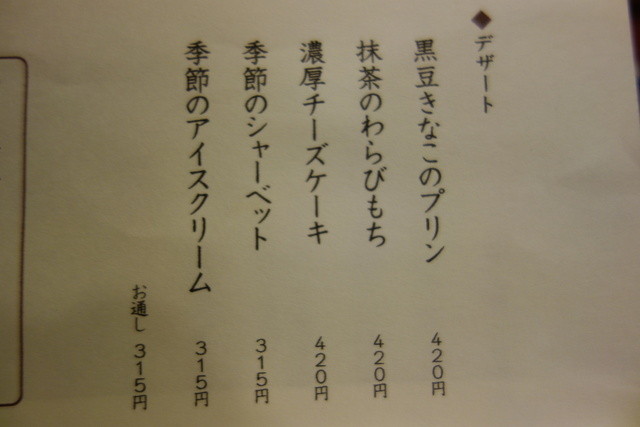 ◆デザート
黒豆きなこのプリン 420円
抹茶のわらびもち 420円
濃厚チーズケーキ 420円
季節のシャーベット 315円
季節のアイスクリーム 315円
お通し 315円